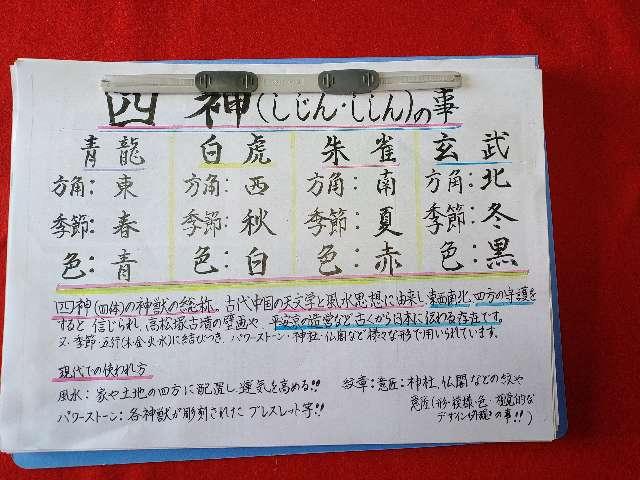 四神(しじん・ししん)の事
青龍 白虎 朱雀 玄武
方角:東 方角:西 方角:南 方角:北
季節:春 季節:秋 季節:夏 季節:冬
色:青 色:白 色:赤 色:黒
四神(四体)の神獣の総称。古代中国の天文学と風水思想に由来し東西南北、四方の守護を
すると信じられ、高松塚古墳の壁画や、平安京の造営など古くから日本に伝わる存在です。
又、季節・五行(木・金・火・水)に結びつき、パワーストーン・神社・仏閣など様々な形で用いられています。
現代での使われ方
風水:家や土地の四方に配置し、運気を高める!!
パワーストーン:各神獣が彫刻されたブレスレット等!!
紋章:意匠:神社、仏閣などの紋や
意匠(形・模様・色・視覚的な
デザイン の事!!)